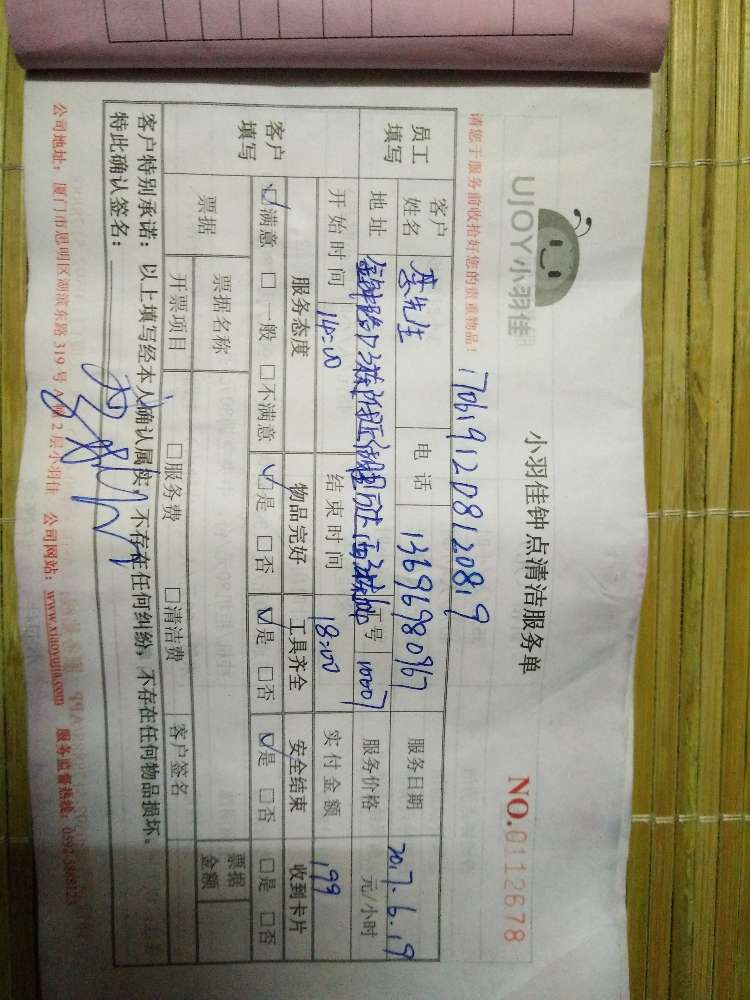 UJOY小羽佳
小羽佳钟点清洁服务单
NO.0112678
请您于服务前收拾好您的贵重物品！
170619120812081 9
员工填写 客户姓名 李先生 电话 13696980967 服务日期 2017.6.19
地址 工号 10007 服务价格 元/小时
开始时间 14:00 结束时间 18:00 实付金额 199
客户填写 服务态度 物品完好 工具齐全 安全结束 收到卡片
☑满意 □一般 □不满意 ☑是 □否 ☑是 □否 ☑是 □否 □是 □否
票据 票据名称 票据金额
开票项目 □服务费 □清洁费 客户签名
客户特别承诺：以上填写经本人确认属实。不存在任何纠纷，不存在任何物品损坏。
特此确认签名：
公司地址：厦门市思明区湖滨东路319号A幢2层小羽佳 公司网站：www.xiaoyujia.com 服务监督热线：